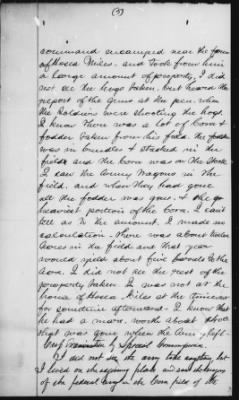 (9)
command encamped near the farm
of Hosea Niles. and took from him
a large amount of property, I did
not see the hogs taken, but heard the
report of the guns at the pen when
the soldiers were shooting the hogs
I know there was a lot of corn &
fodder taken from his field. the fodder
was in bundles & stacked in the
field and the corn was on the stalk
I saw the army wagons in the
field, and when they had gone
all the fodder was gone. & the
heaviest portion of the corn. I can't
tell as to the amount, I made no
calculation - there was about
acres in the field and that year
would yield about five barrels to the
acre. I did not see the rest of the
property taken. I was not at the
house of Hosea Niles at the time nor
for sometime afterward - I know that
he had a mare worth about
that was gone when the army left -
by Special Commissioner.
I did not see the army take anything, but
I lived on the adjoining place and saw
of the federal in the corn field of the